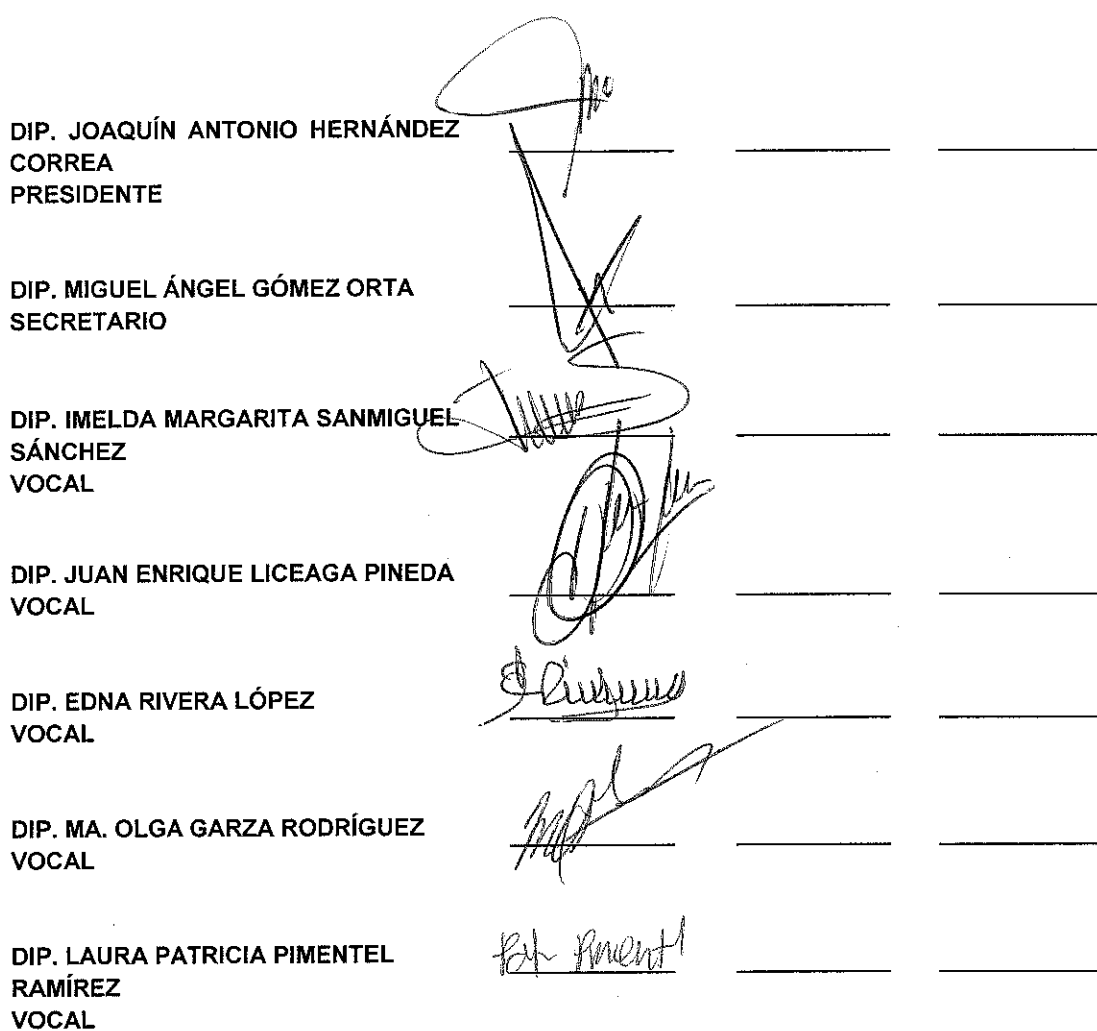 DIP. JOAQUÍN ANTONIO HERNÁNDEZ
CORREA
PRESIDENTE
DIP. MIGUEL ÁNGEL GÓMEZ ORTA
SECRETARIO
DIP. IMELDA MARGARITA SANMIGUEL
SÁNCHEZ
VOCAL
DIP. JUAN ENRIQUE LICEAGA PINEDA
VOCAL
DIP. EDNA RIVERA LÓPEZ
VOCAL
DIP. MA. OLGA GARZA RODRÍGUEZ
VOCAL
DIP. LAURA PATRICIA PIMENTEL
RAMÍREZ
VOCAL